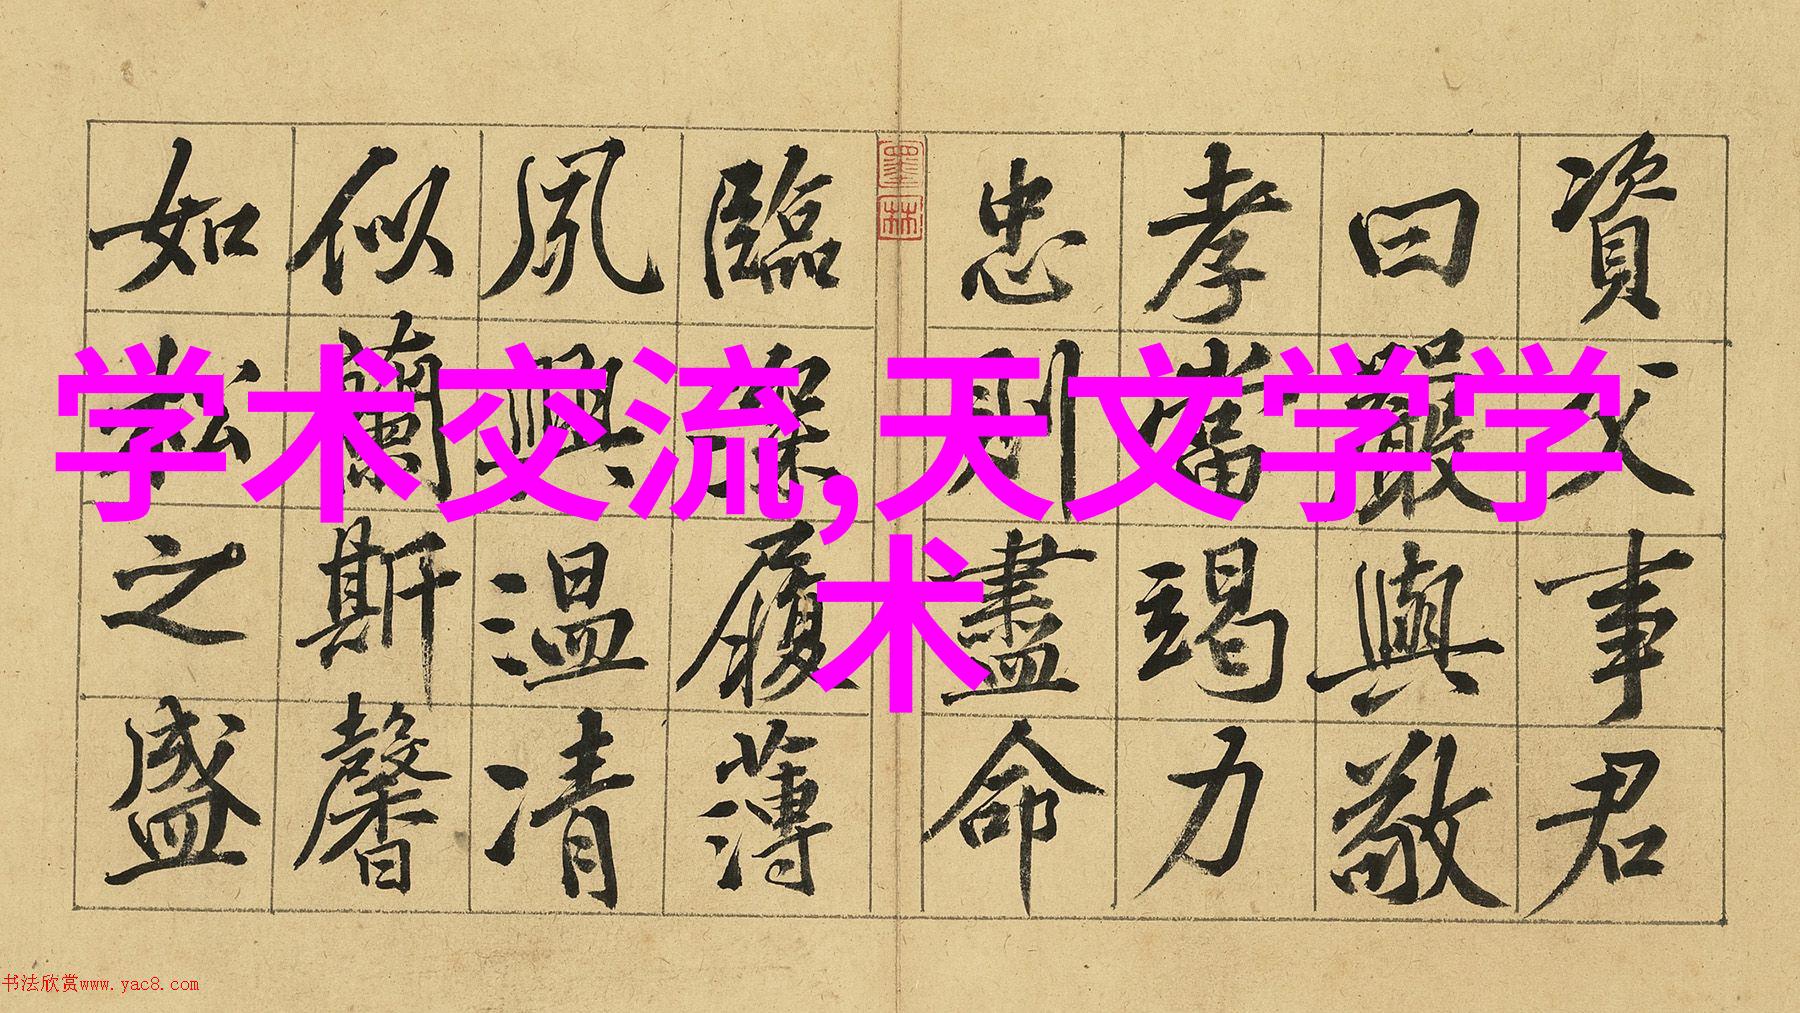 学术交流,天文学学
术
資父事君
曰嚴與敬
孝當竭力
忠則盡命
墨林
臨深履薄
夙興温凊
似蘭斯馨
如松之盛
书法欣赏www.yac8.com